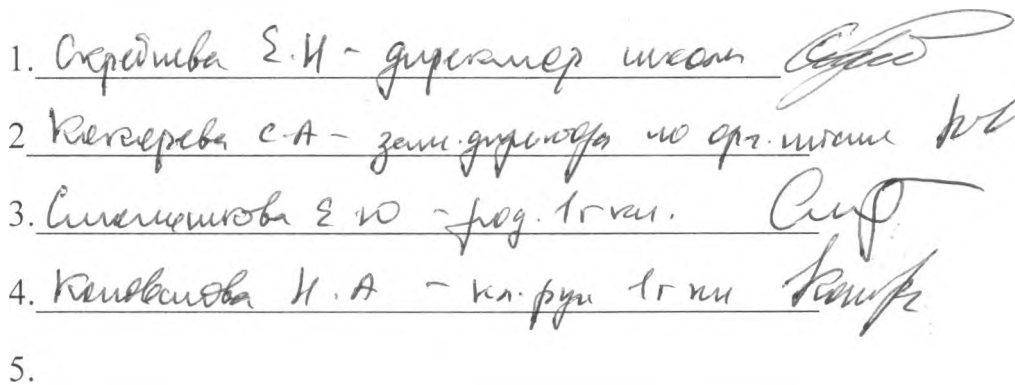 1. Скребнева Е.Н - директор школы
2 Кокорева С.А - зам.директора по орг.питан
3. Сталешкова Е Ю - род. 1г кл.
4. Коновалова Н.А - кл.рук 1г кл
5.